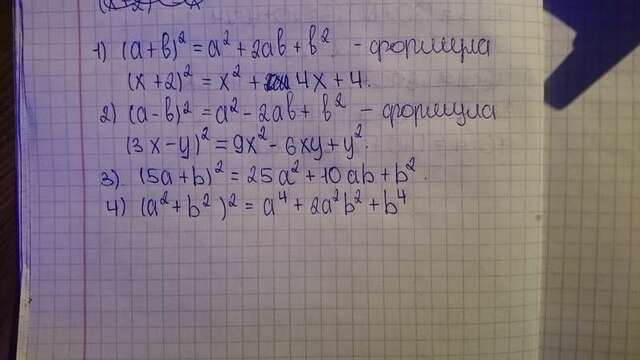 1) (a+b)² = a² + 2ab + b² - формула
(x+2)² = x² + 4x + 4.
2) (a-b)² = a² - 2ab + b² - формула
(3x-y)² = 9x² - 6xy + y².
3) (5a+b)² = 25a² + 10ab + b².
4) (a² + b²)² = a⁴ + 2a²b² + b⁴